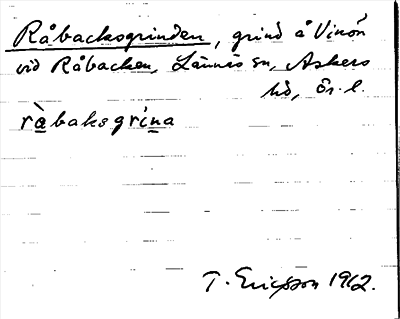 Råbacksgrinden, grind å Vinön
vid Råbacken, Lännäs sn, Askers
hd, Ör. l.
ràbaksgrína
T. Ericsson 1962.